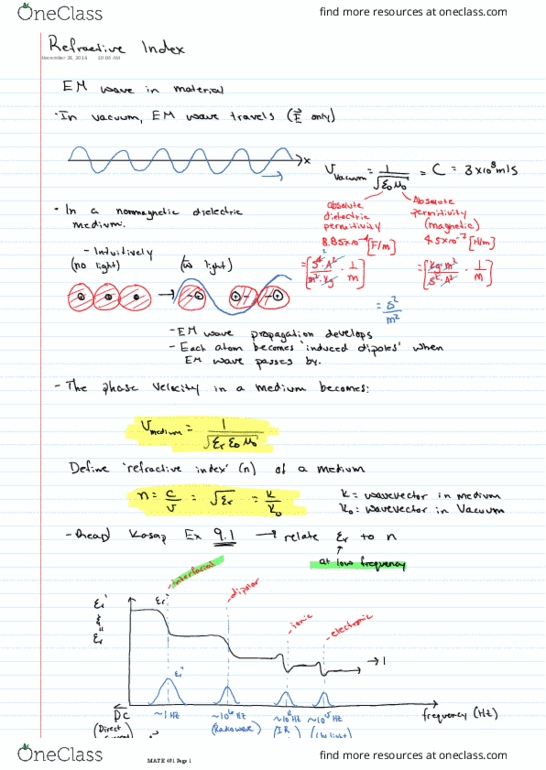 OneClass
find more resources at oneclass.com
Refractive Index
November 28, 2016 10:06 AM
EM wave in material
· In vacuum, EM wave travels (E⃗ only)
x
V vacuum = 1/√ε₀μ₀ = C = 3x10⁸ m/s
- In a nonmagnetic dielectric medium.
absolute dielectric permittivity
8.85x10 [F/m]
Absolute permittivity (magnetic)
[H/m]
- Intuitively
(no light) → (w light)
= [s⁴·A²/m²·kg · 1/m]
= [kg·m²/s²·A² · 1/m]
= s²/m²
- EM wave propagation develops
- Each atom becomes 'induced dipoles' when
EM wave passes by.
- The phase velocity in a medium becomes:
Vmedium = 1/√εr ε₀ μ₀
Define 'refractive index' (n) of a medium
n = c/v = √εr = k/k₀
k = wavevector in medium
k₀ = wavevector in Vacuum
- Read Kasap Ex 9.1 → relate εr to n
at low frequency
- interfacial
- dipolar
- ionic
- electronic
εr' & εr"
εr'
εr"
→ 1
DC
(Direct
~1 Hz
~10⁶ Hz
(IR)
frequency (Hz)
OneClass
MATE 491 Page 1
find more resources at oneclass.com